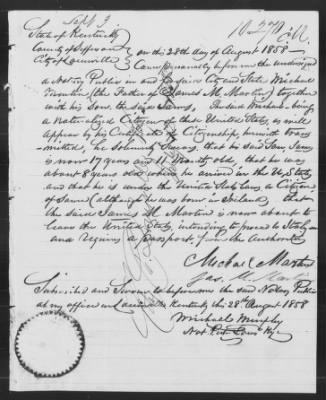 Sept 3
State of Kentucky
County of Jefferson
City of Louisville
on this 28th day of August 1858
Came personally before me the undersigned
a Notary Public in and for said City and State Michael
Martin (the Father of James M. Martin) together
with his Son, the said James, The said Michael being
a naturalized Citizen of the United States, as will
appear by his Certificate of Citizenship, herewith trans-
mitted, he Solemnly Swears, that he said Son James
is now 17 years and 11 Months old, that he was
about 8 years old when he arrived in the U. States
and that he is under the United States laws a Citizen
of Same (although he was born in Ireland) that
the said James M. Martin is now about to
leave the United States intending to proceed to Italy
and requires a passport from the Authorities
Michael Martin
Jas. M. Martin
Subscribed and Sworn to before me the said Notary Public
at my office and Kentucky this 28th August 1858
Michael Murphy
Not. Pub. Lou. Ky.